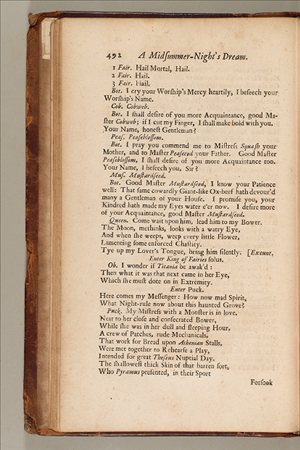 492 A Midsummer-Night's Dream.
1 Fair. Hail Mortal, Hail.
2 Fair. Hail.
3 Fair. Hail.
Bot. I cry your Worship's Mercy heartily, I beseech your
Worship's Name.
Cob. Cobweb.
Bot. I shall desire of you more Acquaintance, good Ma-
ster Cobweb; if I cut my Finger, I shall make bold with you.
Your Name, honest Gentleman?
Peas. Peaseblossom.
Bot. I pray you commend me to Mistress Squash your
Mother, and to Master Peascod your Father. Good Master
Peaseblossom, I shall desire of you more Acquaintance too.
Your Name, I beseech you, Sir?
Mus. Mustardseed.
Bot. Good Master Mustardseed, I know your Patience
well: That same cowardly Giant-like Ox-beef hath devour'd
many a Gentleman of your House. I promise you, your
Kindred hath made my Eyes water e'er now. I desire more
of your Acquaintance, good Master Mustardseed.
Queen. Come wait upon him, lead him to my Bower.
The Moon, methinks, looks with a watry Eye,
And when she weeps, weep every little Flower,
Lamenting some enforced Chastity.
Tye up my Lover's Tongue, bring him silently. [Exeunt.
Enter King of Fairies solus.
Ob. I wonder if Titania be awak'd:
Then what it was that next came in her Eye,
Which she must dote on in Extremity.
Enter Puck.
Here comes my Messenger: How now mad Spirit,
What Night-rule now about this haunted Grove?
Puck. My Mistress with a Monster is in love.
Near to her close and consecrated Bower,
While she was in her dull and sleeping Hour,
A crew of Patches, rude Mechanicals,
That work for Bread upon Athenian Stalls,
Were met together to Rehearse a Play,
Intended for great Theseus Nuptial Day.
The shallowest thick Skin of that barren sort,
Who Pyramus presented, in their Sport
Forsook